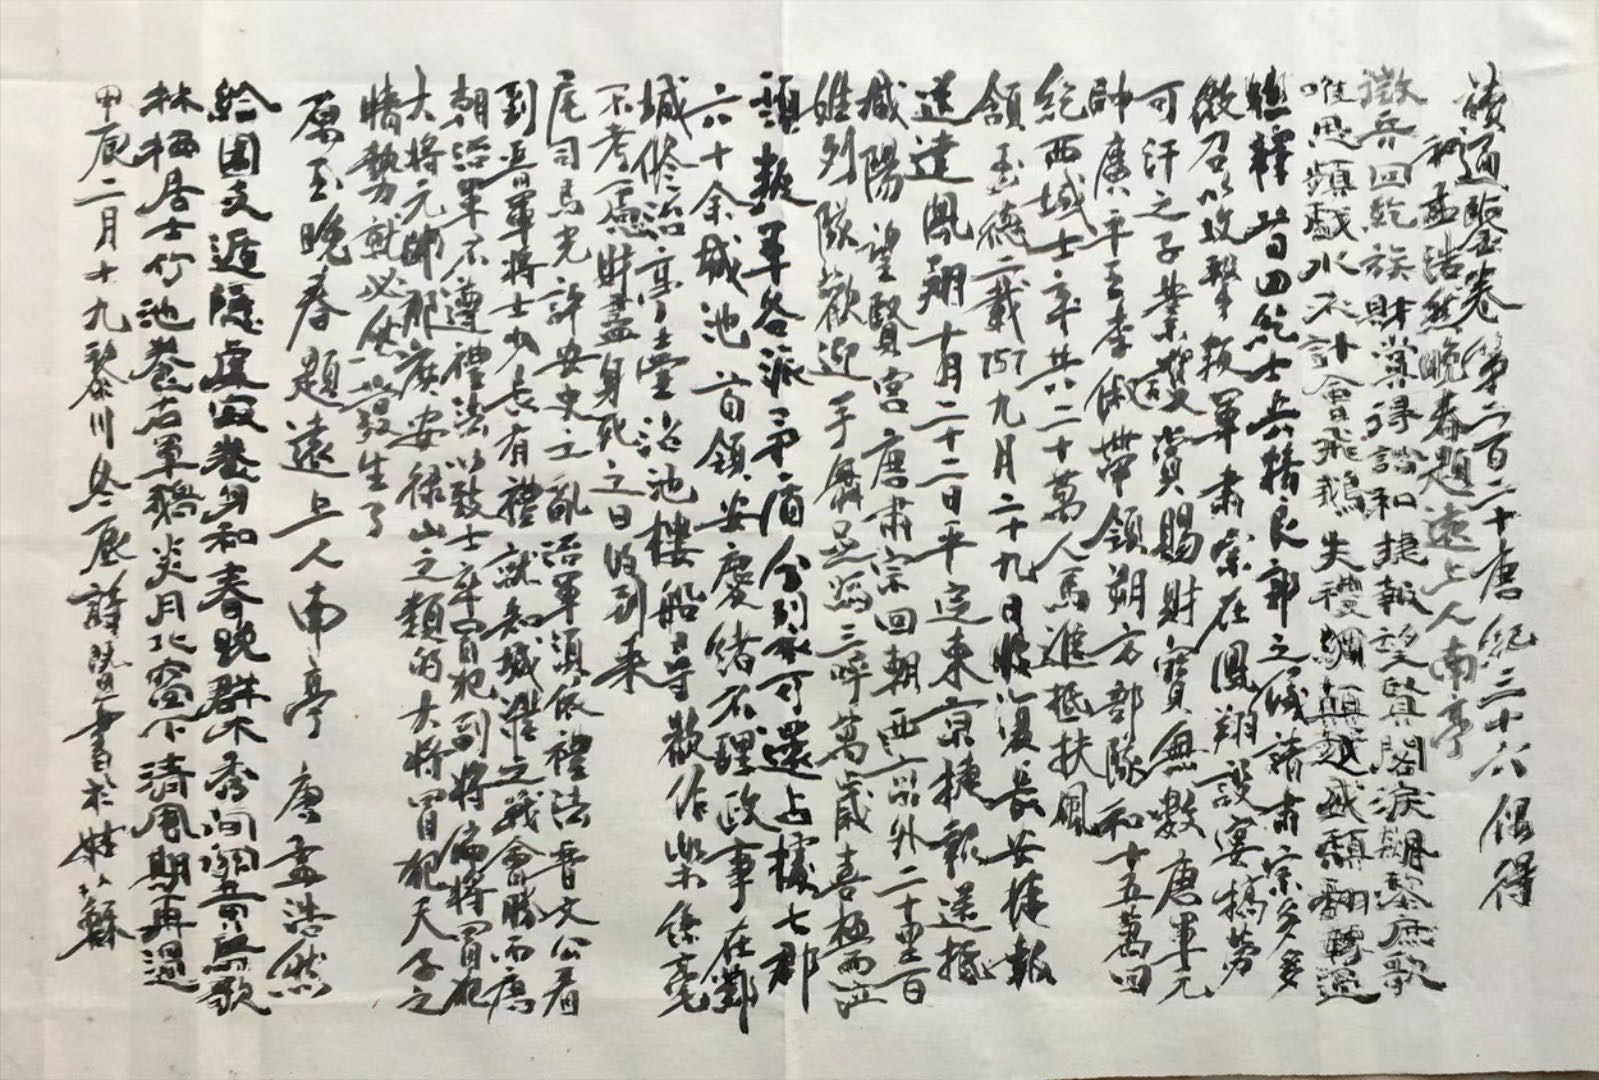 讀通鑒卷第二百二十唐紀三十六偶得
和孟浩然晚春題遠上人南亭
徵兵回紇族財賞得諧和捷報望賢閣淚眼黎庶歌
唯思頻戲水不計會飛鵝失禮綱顛越城頹翻轉過
軀釋皆回紇士兵精良郭子儀請肅宗多多
徵召以攻擊叛軍肅宗在鳳翔設宴犒勞
可汗之子葉護賞賜財寶無數唐軍元
帥廣平王李俶帶領朔方部隊和十五萬回
紇西域士卒共二十萬人馬進抵扶風
領至德二載757九月二十九日收復長安捷報
送達鳳翔十月二十二日平定東京捷報送抵
咸陽望賢宮唐肅宗回朝西京外二十里百
姓列隊歡迎手舞足蹈三呼萬歲喜極而泣
須叛軍各派矛盾分別不可還占據七郡
六十余城池首領安慶緒不理政事在鄴
城修治亭臺沼池樓船尋歡作樂絲毫
不考慮財盡身死之日將到來
尾司馬光評安史之亂治軍須依禮法晉文公看
到晉軍將士少長有禮就知城濮之戰會勝而唐
朝治軍不遵禮法以致士卒冒犯副將偏將冒犯
大將元帥那麼安祿山之類的大將冒犯天子之
牆勢就必然發生了
原玉晚春題遠上人南亭 唐孟浩然
給園支遁隱虛寂養身和春晚群木秀間關黃鳥歌
林棲居士竹池養右軍鵝炎月北窗下清風期再過
甲辰二月十九黎川冬辰詩賢書於姑蘇